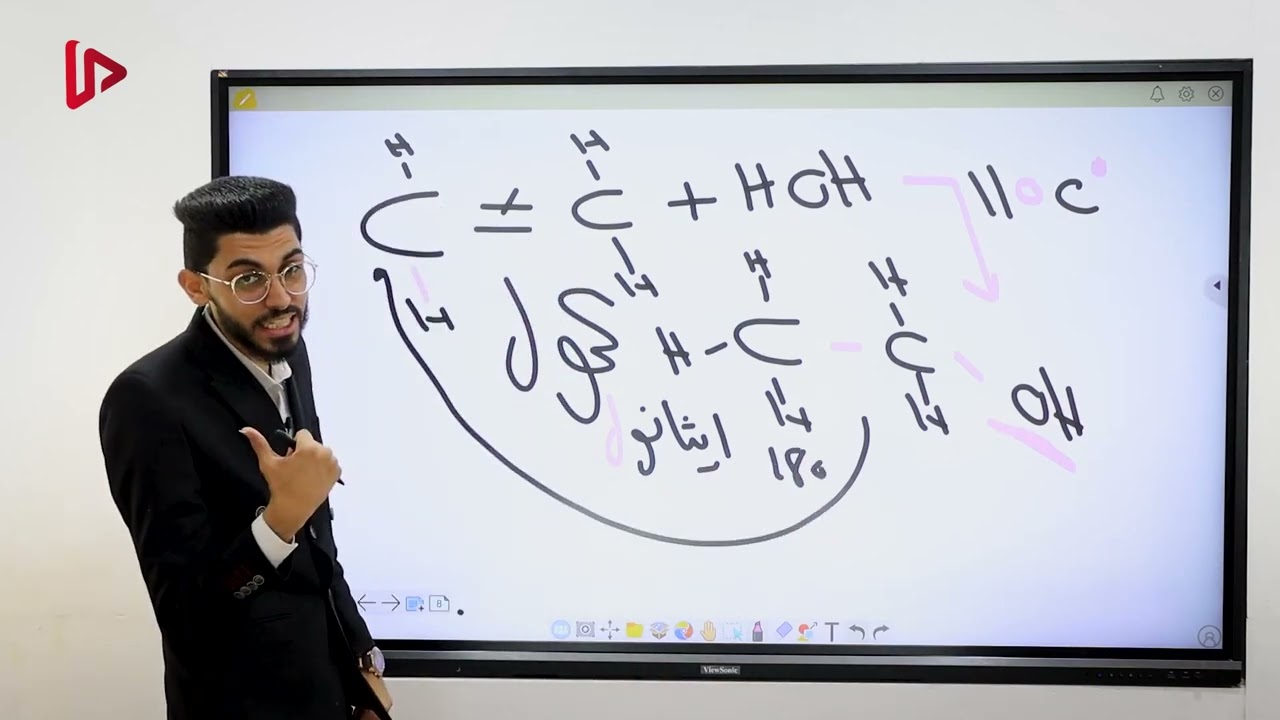 H H
C = C + HOH 110 C°
H H
H H
H - C - C OH
H H
كول
ايثانول
180
8
T
ViewSonic